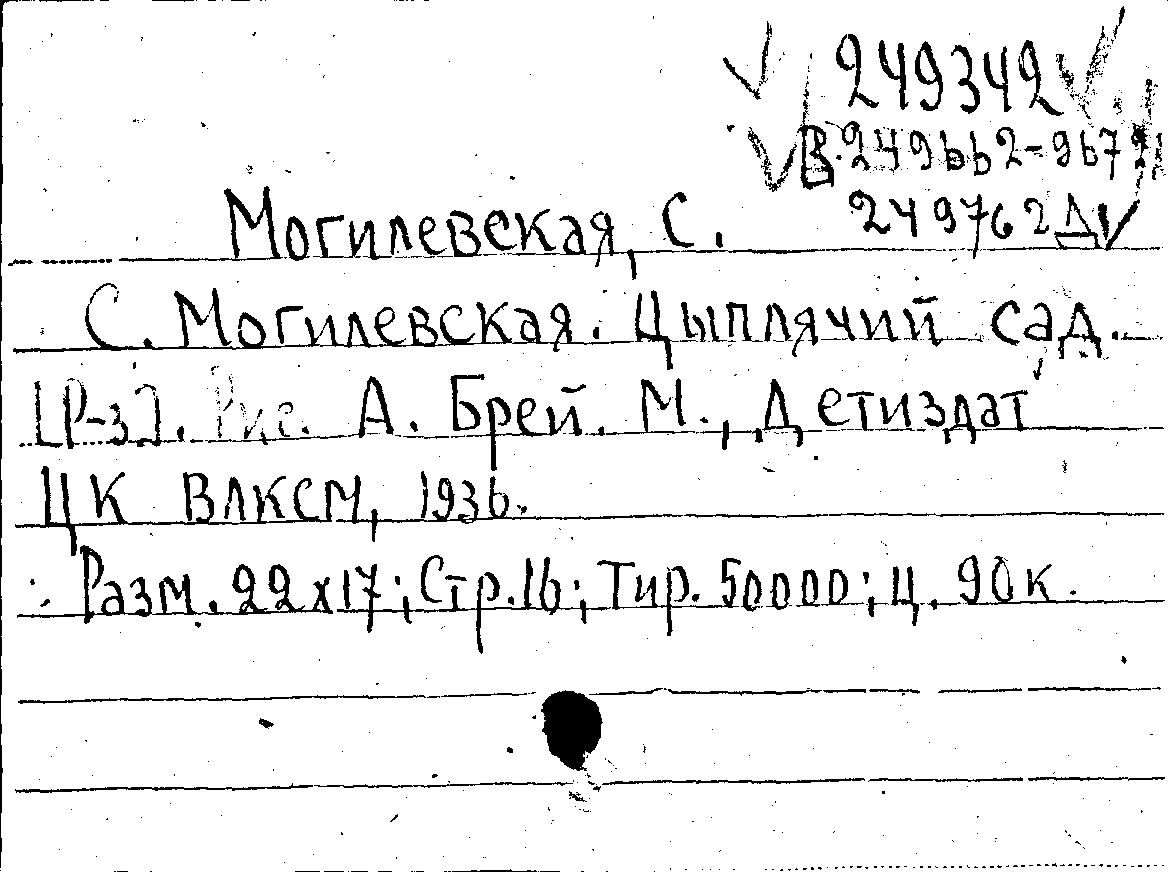 249342
В.249662-967
249762Д
Могилевская, С.
С. Могилевская. Цыплячий сад.
[Р-з]. Рис. А. Брей. М., Детиздат
ЦК ВЛКСМ, 1936.
Разм. 22х17; Стр. 16; Тир. 50000; Ц. 90 к.